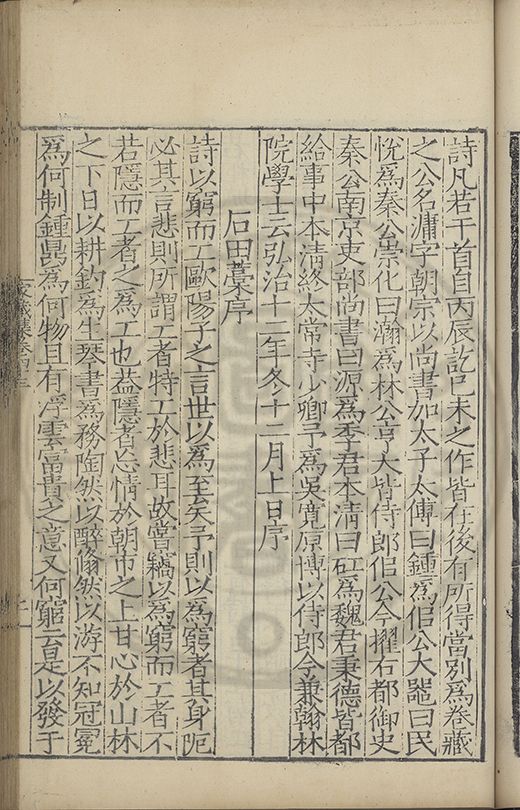 詩凡若干首自丙辰訖己未之作皆在後有所得當別為卷藏
之公名潚字朝宗以尚書加太子太傅曰鍾為佀公大器曰民
悅為秦公崇化曰瀚為林公亨大皆侍郎佀公今擢右都御史
秦公南京吏部尚書曰源為季君本清曰矼為魏君秉德皆都
給事中本清終太常寺少卿予為吳寬原博以侍郎今兼翰林
院學士云弘治十二年冬十二月上日序
石田藁序
詩以窮而工歐陽子之言世以為至矣予則以為窮者其身阨
必其言悲則所謂工者特工於悲耳故嘗竊以為窮而工者不
若隱而工者之為工也葢隱者忘情於朝市之上甘心於山林
之下日以耕釣為生琴書為務陶然以醉翛然以游不知冠冕
為何制鍾鼎為何物且有浮雲富貴之意又何窮云是以發于